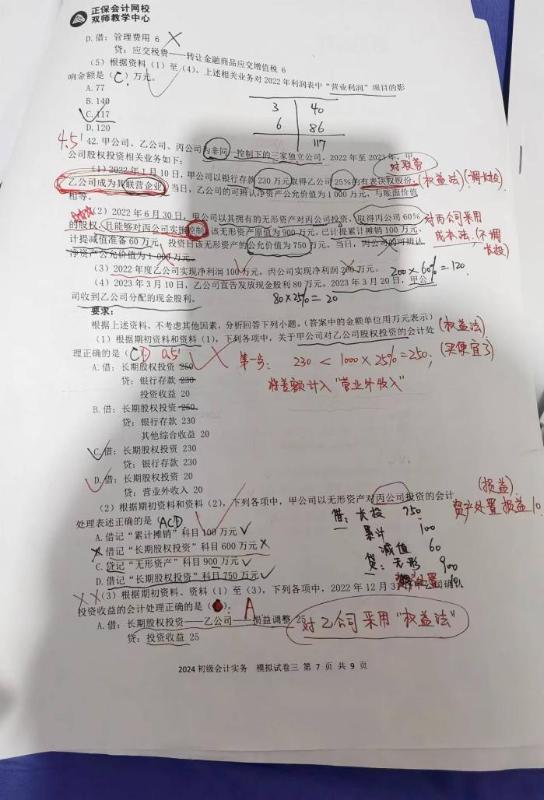 正保会计网校
双师教学中心
D.借：管理费用 6
贷：应交税费——转让金融商品应交增值税 6
（5）根据资料（1）至（4），上述相关业务对2022年利润表中“营业利润”项目的影
响金额是（C）万元。
A.77
B.140
C.117
D.120
3 40
6 86
117
4.5'
42.甲公司、乙公司、丙公司为非同一控制下的三家独立公司，2022年至2023年，甲
公司股权投资相关业务如下：
（1）2022年1月10日，甲公司以银行存款230万元取得乙公司25%的有表决权股份，
(权益法)
乙公司成为其联营企业，当日，乙公司的可辨认净资产公允价值为1 000万元，与账面价值
相等。
（2）2022年6月30日，甲公司以其拥有的无形资产对丙公司投资，取得丙公司60%
的股权，且能够对丙公司实施控制，该无形资产原值为900万元，已计提累计摊销100万元，
计提减值准备60万元，投资日该无形资产的公允价值为750万元，当日，丙公司的可辨认
净资产公允价值为1 000万元。
对丙公司采用
成本法(不调
长投)
（3）2022年度乙公司实现净利润100万元，丙公司实现净利润200万元。
200×60%=120
（4）2023年3月10日，乙公司宣告发放现金股利80万元，2023年3月20日，甲公
司收到乙公司分配的现金股利。
80×25%=20
要求：
根据上述资料，不考虑其他因素，分析回答下列小题。（答案中的金额单位用万元表示）
（1）根据期初资料和资料（1），下列各项中，关于甲公司对乙公司股权投资的会计处
理正确的是（CD
0.5'
(权益法)
(买便宜了)
第一步: 230 < 1000×25%=250,
将差额计入“营业外收入”
A.借：长期股权投资 250
贷：银行存款 230
投资收益 20
B.借：长期股权投资 250
贷：银行存款 230
其他综合收益 20
C.借：长期股权投资 230
贷：银行存款 230
D.借：长期股权投资 20
贷：营业外收入 20
（2）根据期初资料和资料（2），下列各项中，甲公司以无形资产对丙公司投资的会计
处理表述正确的是 ACD
(损益)
资产处置损益 10
A.借记“累计摊销”科目100万元
B.借记“长期股权投资”科目600万元
C.贷记“无形资产”科目900万元
D.借记“长期股权投资”科目750万元
借：长投 750
累计 100
减值 60
贷：无形 900
（3）根据期初资料、资料（1）至（3），下列各项中，2022年12月3
投资收益的会计处理正确的是（
A
A.借：长期股权投资——乙公司——损益调整 25
贷：投资收益 25
对乙公司采用“权益法”
2024初级会计实务 模拟试卷三 第 7 页 共 9 页